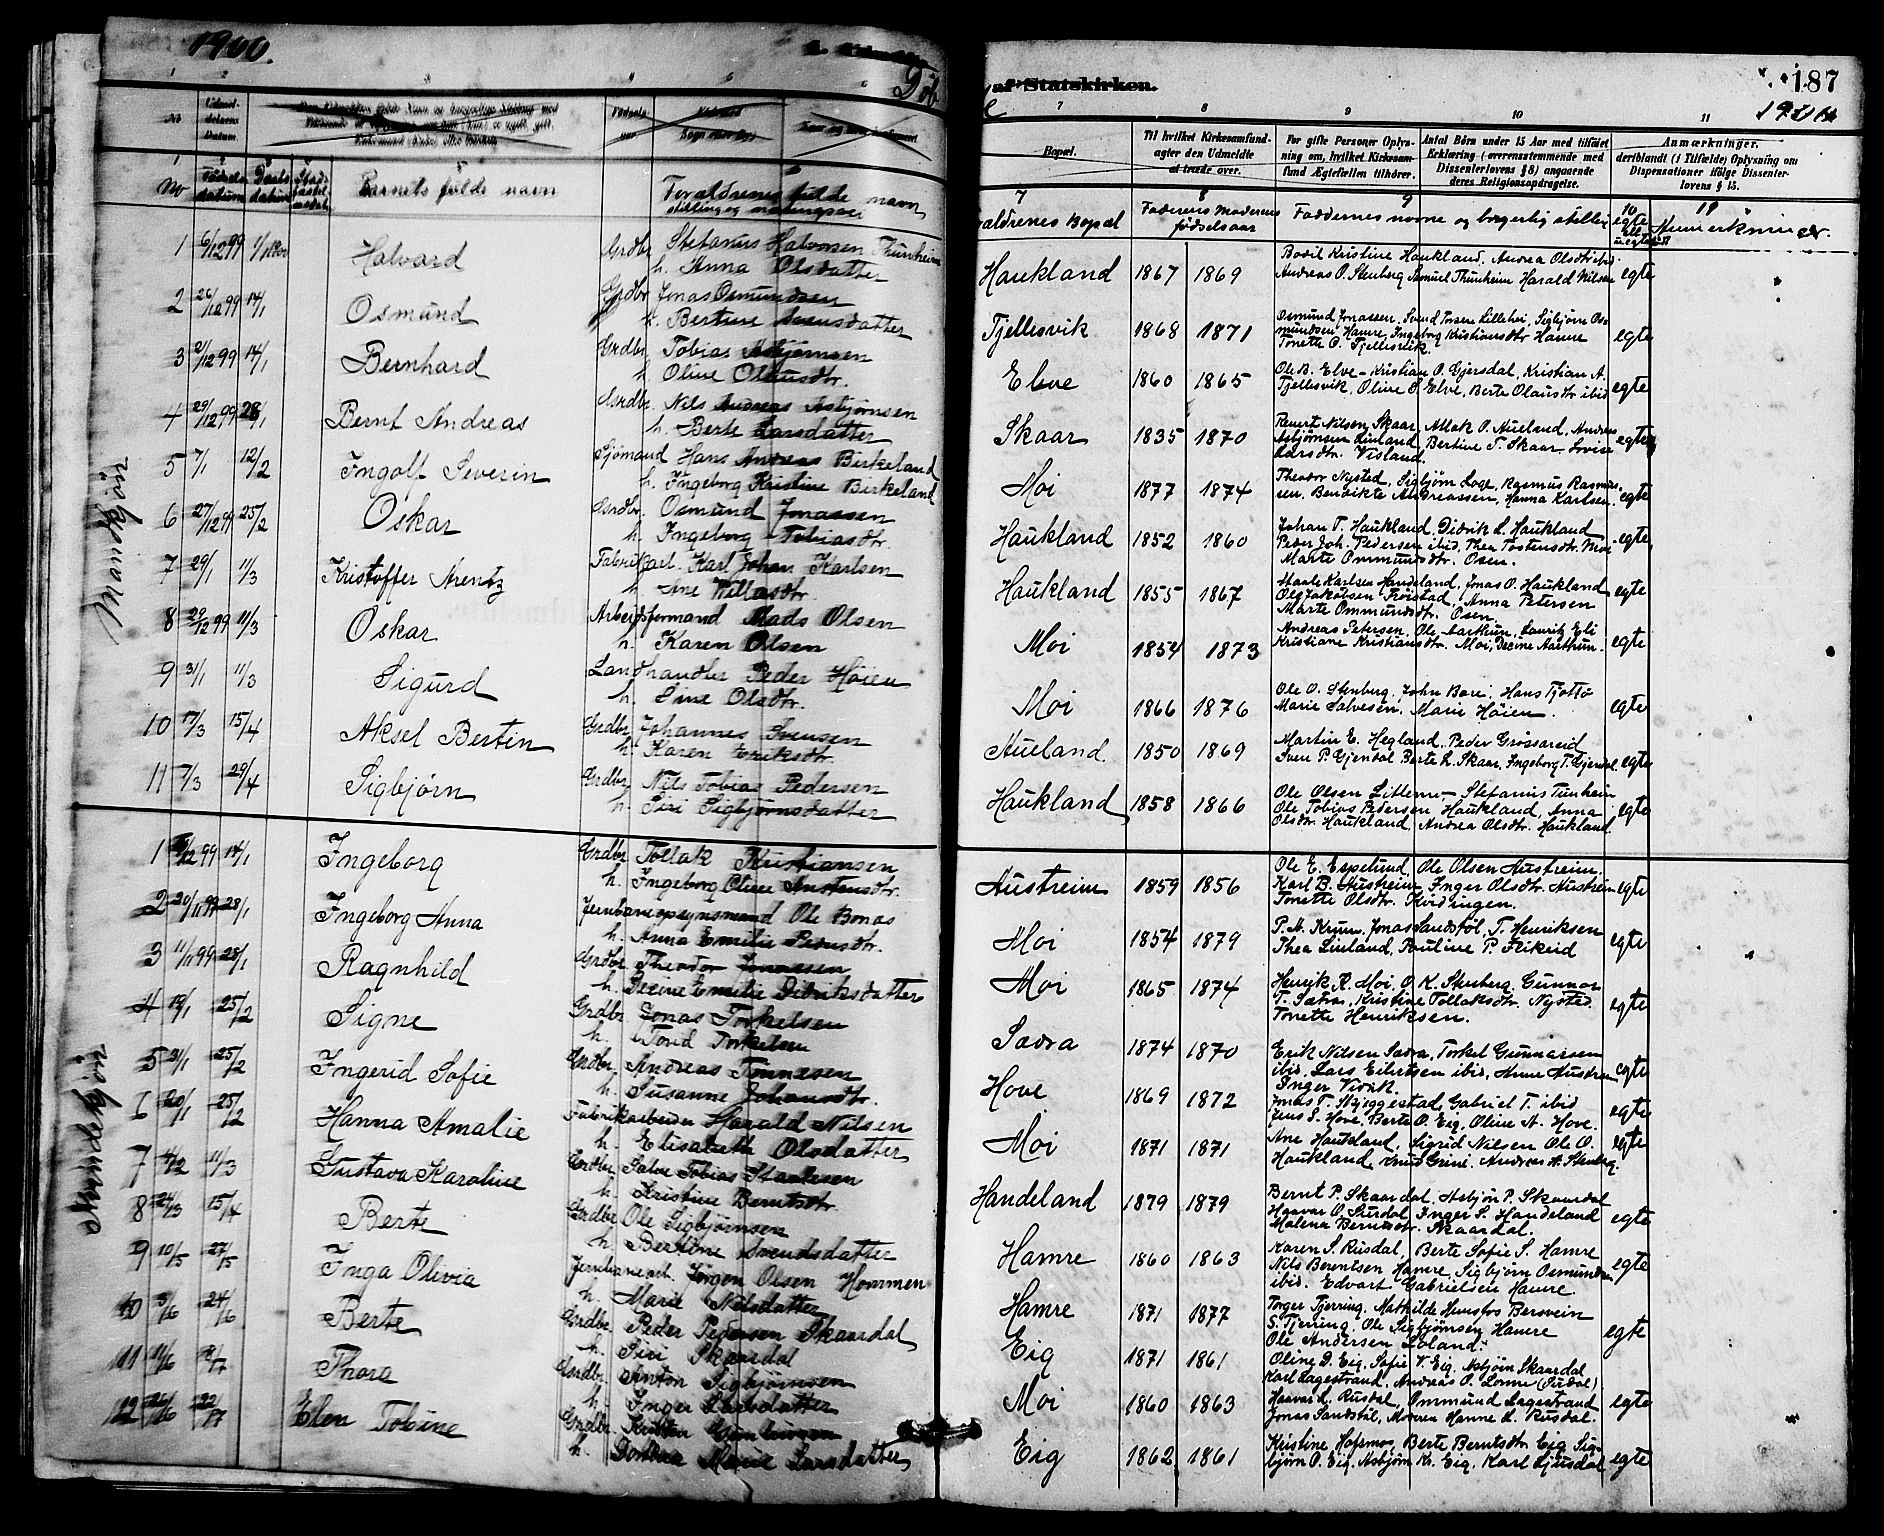 1900.
Døb
af Statskirken.
187
1 2 3 4 5 6
7 8 9 10 11
No
Udmel-
delsens
Datum.
Bopæl.
Til hvilket Kirkesamfund
agter den Udmeldte
at træde over.
For gifte Personer Oplys-
ning om, hvilket Kirkesam-
fund Ægtefællen tilhører.
Antal Börn under 15 Aar med tilföiet
Erklæring (overensstemmende med
Dissenterlovens § 8) angaaende
deres Religionsopdragelse.
Anmærkninger,
deriblandt (i Tilfælde) Oplysning om
Dispensationer ifölge Dissenter-
lovens § 15.
No
Fødsels datum
Daabs datum
Barnets fulde navn
Forældrenes fulde navn,
stilling og
ældrenes Bopæl
Faderens Moderens
fødselsaar
Faddernes navne og borgerlig stilling
egte
ell.
uegte
Anmerkninger.
Mandkjøn
1 6/12 99 Halvard Grdbr. Stefanus Halvorsen Thunheim
h. Anna Olsdatter
Haukland 1867 1869 Bodil Kristine Haukland, Andrea Olsdtr ibid.
Andreas O. Stenberg Samuel Thunheim Harald Nilsen egte
2 26/12 99 14/1 Osmund Grdbr. Jonas Osmundsen
h. Bertine Svensdatter
Tjellesvik 1868 1871 Osmund Jonassen, Svend Torsen Lillehei, Sigbjørn Os-
mundsen Hamre, Ingeborg Kristiansdtr Hamre
Tonette O. Tjellesvik. egte
3 2/12 99 14/1 Bernhard Grdbr. Tobias Asbjørnsen
h. Oline Olausdtr.
Elve 1860 1865 Ole B. Elve - Kristian O. Gjersdal, Kristian A.
Tjellesvik, Oline O. Elve, Berte Olausdtr ibid egte
4 29/12 99 28/1 Bernt Andreas Grdbr. Nils Andreas Asbjørnsen
h. Berte Larsdatter
Skaar 1835 1870 Reinert Nilsen Skaar, Atlak O. Aueland, Andreas
Asbjørnsen Lauland, Bertine T. Skaar Lovise
Larsdtr. Visland. egte
5 7/1 12/2 Ingolf Severin Sjømand Hans Andreas Birkeland
h. Ingeborg Kristine Birkeland
Moi 1877 1874 Theodor Nysted, Sigbjørn Loge, Rasmus Rasmus-
sen, Bendikte Andreassen, Hanna Karlsen. egte
6 27/12 99 25/2 Oskar Grdbr. Osmund Jonassen
h. Ingeborg Tobiasdtr.
Haukland 1852 1860 Johan T. Haukland Didrik L. Haukland
Peder Joh. Pedersen ibid, Thea Tostensdtr. Moi
Marte Ommundsdtr. Osen. egte
7 29/1 11/3 Kristoffer Arentz Fabrikarb. Karl Johan Karlsen
h. Ane Willasdtr.
Haukland 1855 1867 Staale Karlsen Handeland, Jonas O. Haukland
Ole Jakobsen Frøistad, Anna Petersen
Marte Ommundsdtr. Osen. egte
8 29/12 99 11/3 Oskar Arbeidsformand Mads Olsen
h. Karen Olsen
Moi 1854 1873 Andreas Petersen, Ole Aarthun, Lauritz Eli
Kristiane Kristiansdtr. Moi, Decine Aarthun. egte
9 31/1 11/3 Sigurd Landhandler Peder Høien
h. Sine Olsdtr.
Moi 1866 1876 Ole O. Stenberg, John Bore, Hans Tjotta
Marie Salvesen, Marie Høien. egte
10 17/3 15/4 Aksel Bertin Grdbr. Johannes Svensen
h. Karen Eriksdtr.
Aueland 1850 1869 Martin E. Hegland, Peder Grøssereid
Sven P. Gjendal Berte L. Skaar, Ingeborg T. Gjendal. egte
11 7/3 29/4 Sigbjørn Grdbr. Nils Tobias Pedersen
h. Siri Sigbjørnsdatter
Haukland 1858 1866 Ole Olsen Littlemo - Stefanus Tunheim
Ole Tobias Pedersen, Haukland, Anna
Olsdtr. Haukland, Andrea Olsdtr. Haukland. egte
Kvindekjøn
1 /12 99 14/1 Ingeborg Grdbr. Tollak Kristiansen
h. Ingeborg Oline Austensdtr.
Austreim 1859 1856 Ole E. Espelund, Ole Olsen Austreim,
Karl B. Austreim Inger Olsdtr. Austreim
Tonette Olsdtr. Kvidingen. egte
2 20/11 99 28/1 Ingeborg Anna Jernbaneopsynsmand Ole Bonas
h. Anna Emilie Pedersdtr.
Moi 1854 1879 P. A. Krum, Jonas Sandstøl, T. Henriksen
Thea Lineland, Pauline P. Fikeid egte
3 11/11 99 28/1 Ragnhild Grdbr. Theodor Jonassen
h. Decine Emilie Didriksdatter
Moi 1865 1874 Henrik R. Moi, O. K. Stenberg, Gunnar
T. Sætra, Kristine Tollaksdtr. Nysted.
Tonette Henriksen. egte
4 19/1 25/2 Signe Grdbr. Jonas Torkelsen
h. Torid Torkelsen
Sadra 1874 1870 Erik Nilsen Sadra, Torkel Gunnarsen
ibid, Lars Eilertsen ibid, Anne Austreim
Inger Virak. egte
5 31/1 25/2 Ingerid Sofie Grdbr. Andreas Tønnesen
h. Susanne Johansdtr.
Hove 1869 1872 Jonas T. Skjeggestad, Gabriel T. ibid
Jens S. Hove, Berte O. Eig, Oline A. Hove. egte
6 20/1 25/2 Hanna Amalie Fabrikarbeider Harald Nilsen
h. Elisabeth Olsdatter
Moi 1871 1871 Ane Haukland, Sigrid Nilsen Ole O.
Haukland, Knud Grini, Andreas A. Stenberg. egte
7 4/2 11/3 Gustava Karoline Grdbr. Salve Tobias Staalesen
h. Kristine Berntsdtr.
Handeland 1879 1879 Bernt P. Skaardal, Asbjørn P. Skaardal
Haavar O. Surdal, Inger S. Handeland
Malena Berntsdtr. Skaardal. egte
8 24/3 15/4 Berte Grdbr. Ole Sigbjørnsen
h. Bertine Svendsdatter
Hamre 1860 1863 Karen S. Rusdal, Berte Sofie S. Hamre
Nils Berentsen Hamre, Sigbjørn Osmundsen
ibid. Edvart Gabrielsen Hamre. egte
9 10/5 27/5 Inga Olivia Jernbanearb. Jørgen Olsen Hommen
h. Marie Nilsdatter
Hamre 1871 1877 Torger Tjerring, Mathilde Hunsfos Bersvein
S. Tjerring, Ole Sigbjørnsen Hamre
Ole Andersen Loland. egte
10 3/6 24/6 Berte Grdbr. Peder Pedersen Skaardal
h. Siri Skaardal
Eig 1871 1861 Oline D. Eig, Sofie V. Eig, Asbjørn Skaardal
Karl Lagestrand, Andreas O. Lonne (Sirdal)
11 11/6 8/7 Thora Grdbr. Anton Sigbjørnsen
h. Inger Larsdatter
Moi 1860 1863 Haavar L. Rusdal, Ommund Lagestrand
Jonas Sandstøl, Moderen Hanne L. Rusdal. egte
12 26/6 22/7 Elen Tobine Grdbr.
h. Dorthea Marie Larsdatter
Eig 1862 1861 Kristine Hafsmo, Berte Berntsdtr Eig, Sig-
bjørn O. Eig, Asbjørn Kr. Eig, Karl Ljusdal egte